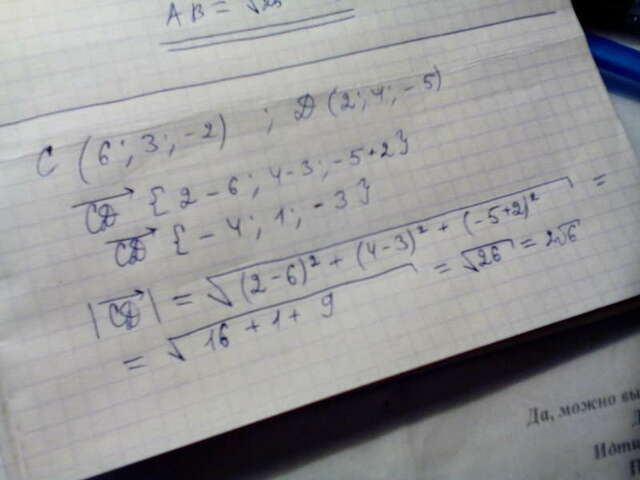 AB = √26
C (6; 3; -2) ; D (2; 4; -5)
CD {2-6; 4-3; -5+2}
CD {-4; 1; -3}
|CD| = √(2-6)² + (4-3)² + (-5+2)² =
= √16 + 1 + 9 = √26 = 2√6
Да, можно вы